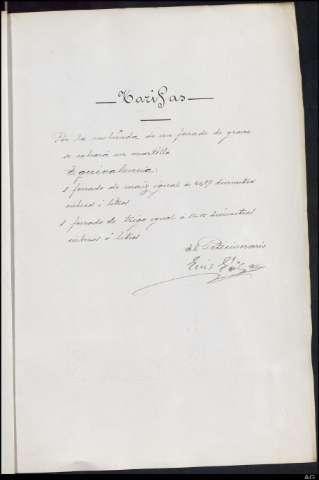 Tarifas
Por la molienda de un ferrado de grano
se cobrará un
Equivalencia
1 ferrado de maiz igual a decimetros
cubicos ó litros
1 ferrado de trigo igual a decimetros
cubicos ó litros
El Peticionario
Luis
AG